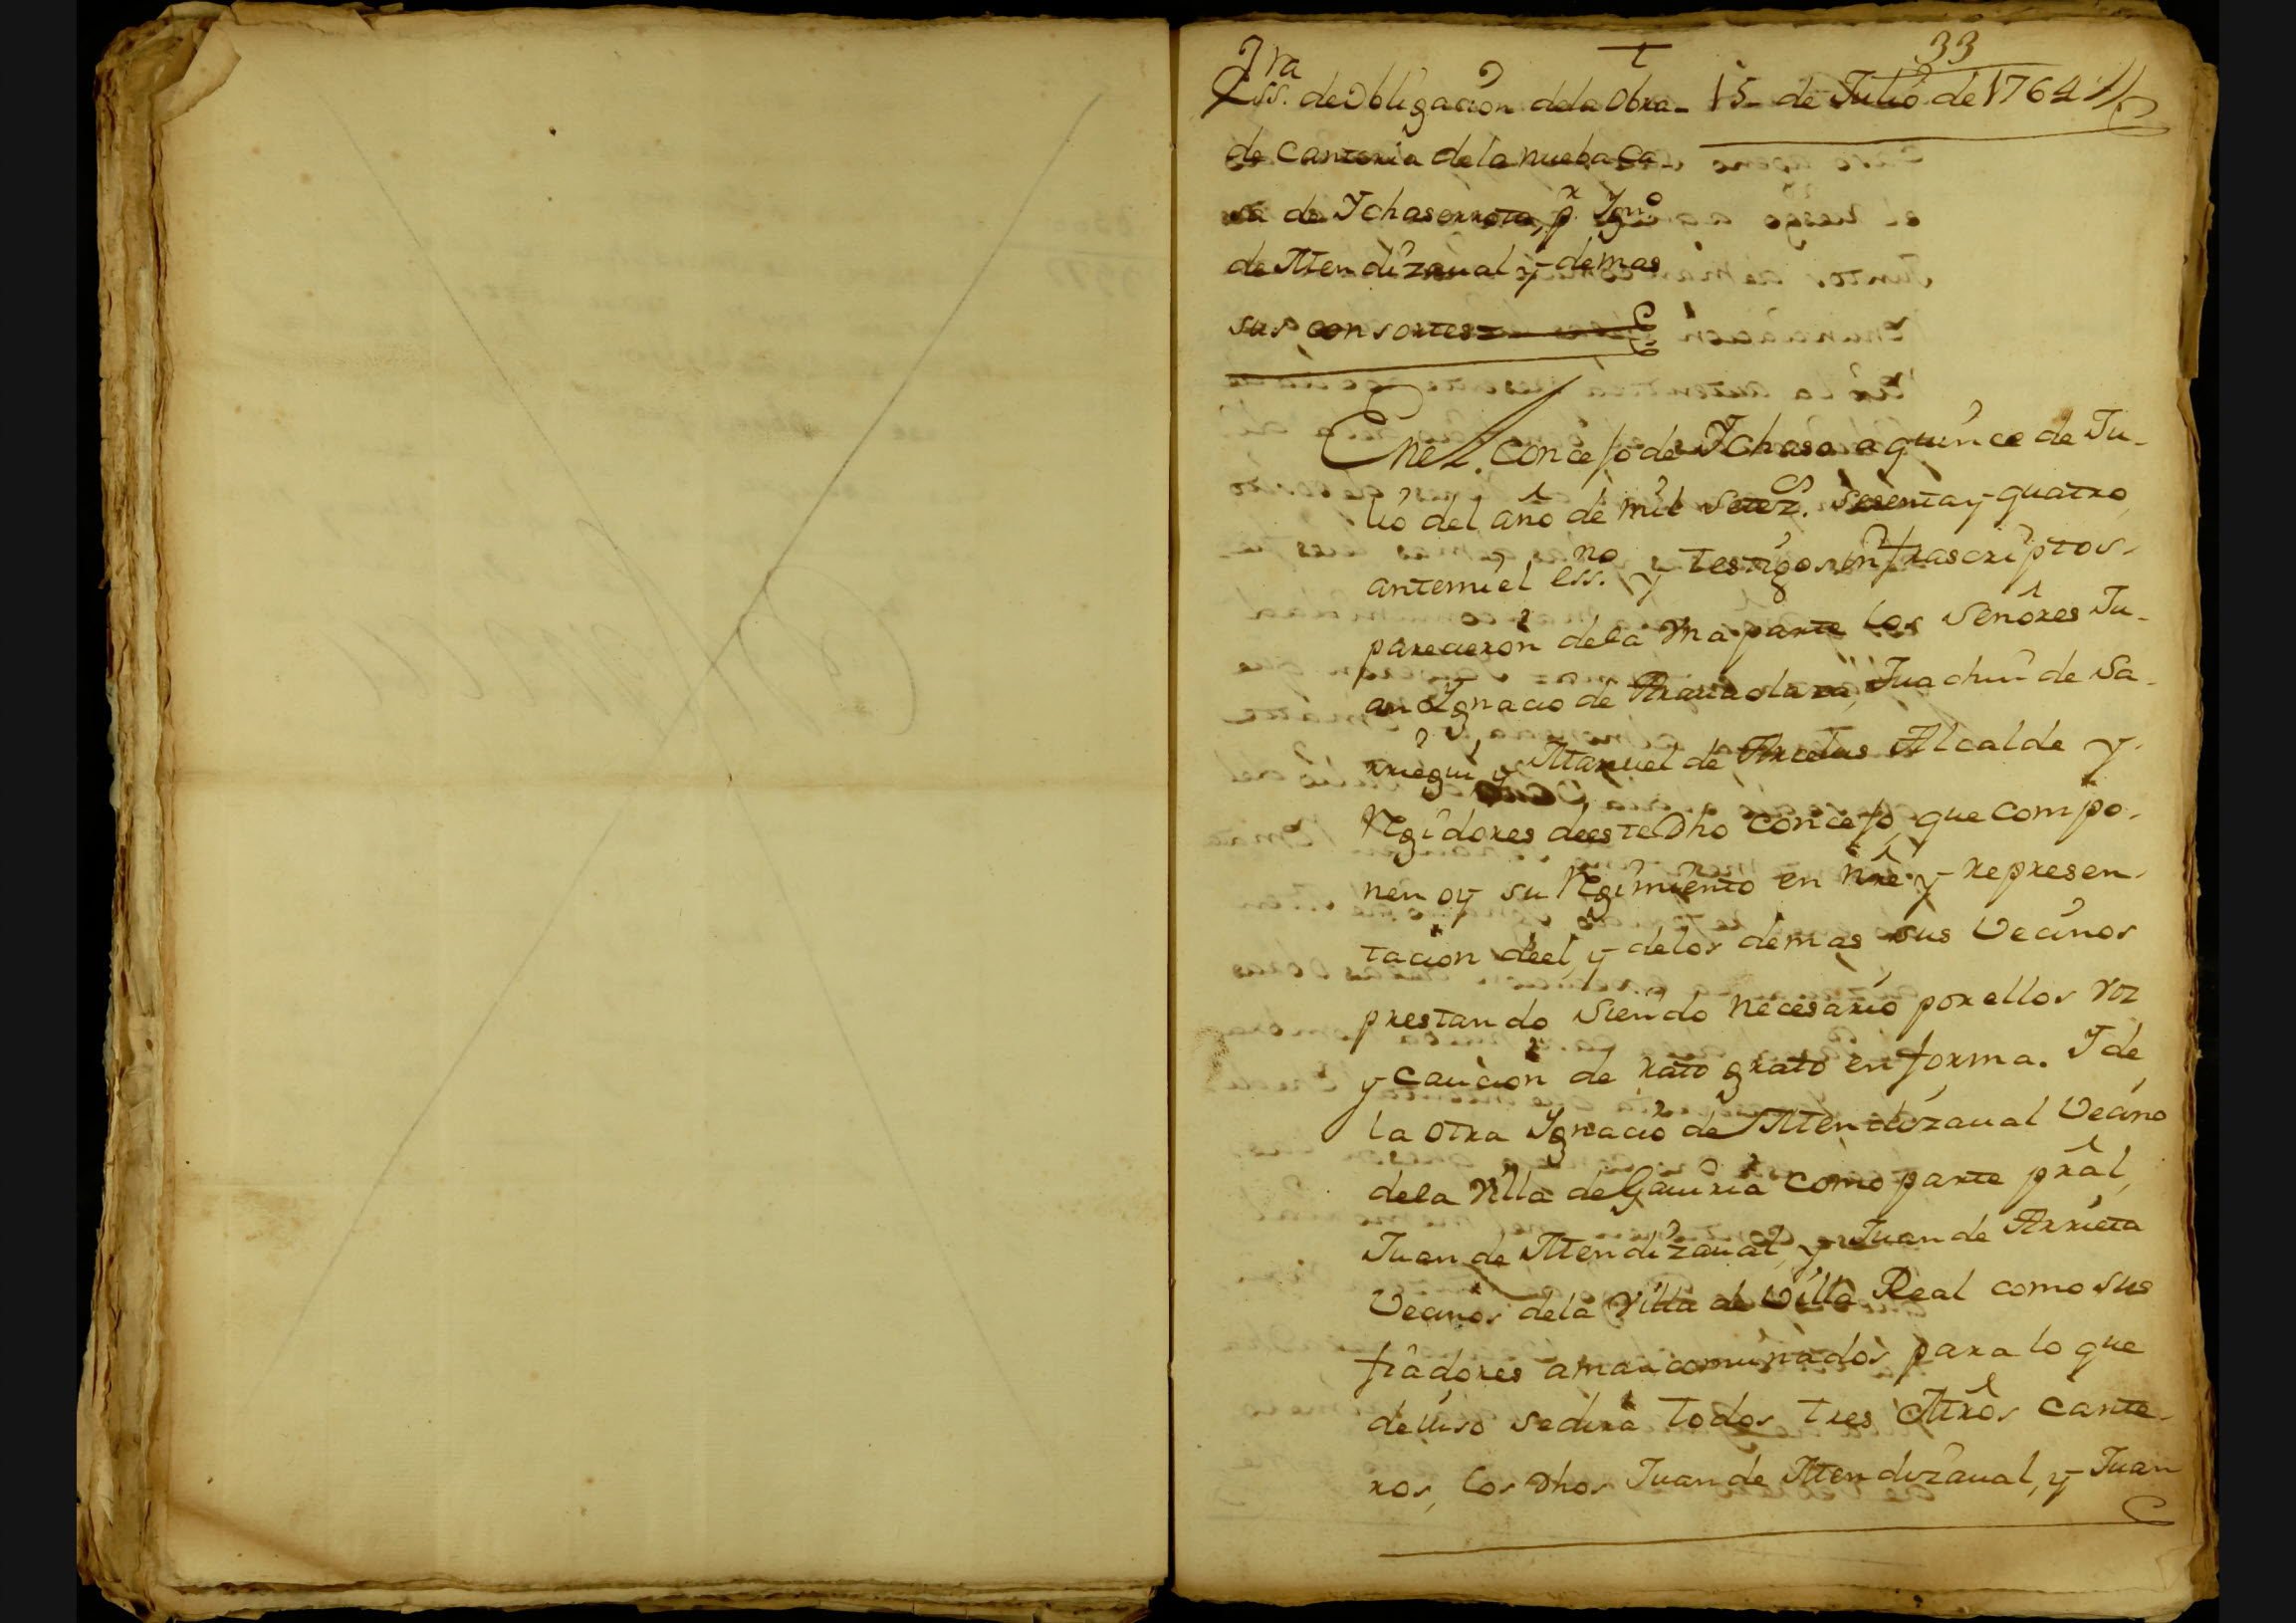 33
Essra. de Obligación dela obra- 15- de Julio de 1764
de Canteria dela nueba Ca
sa de Ychaserrota, pr. Ygno.
de Mendizaual y demas
sus consortes
Enel Concejo de Ychaso a quince de Ju-
lio del año de mil setezs. sesenta y quatro,
antemi el essno. y testigos infrascriptos
parecieron dela Vna parte los Señores Ju-
an Ygnacio de Araunolaza, Juachin de Sa-
rriegui y Manuel de Arcelus Alcalde y
Regidores deeste Dho Concejo, que compo-
nen oy su Regimiento en nre. y represen-
tacion deel, y delos demas sus Vecinos
prestando siendo necesario por ellos Voz
y caucion de rato grato en forma. Y de
la otra Ygnacio de Mendizaual Vecino
dela Villa de Gauiria como parte pral,
Juan de Mendizaual, y Juan de Arrieta
Vecinos dela Villa de Villa Real como sus
fiadores amancomunados para lo que
de iuso sedirá todos tres Mros Cante-
ros, los Dhos Juan de Mendizaual, y Juan